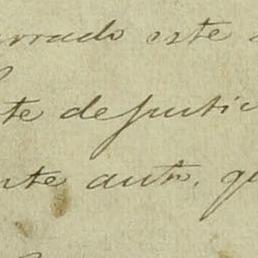 errado este
te de justici
nte auto, qu